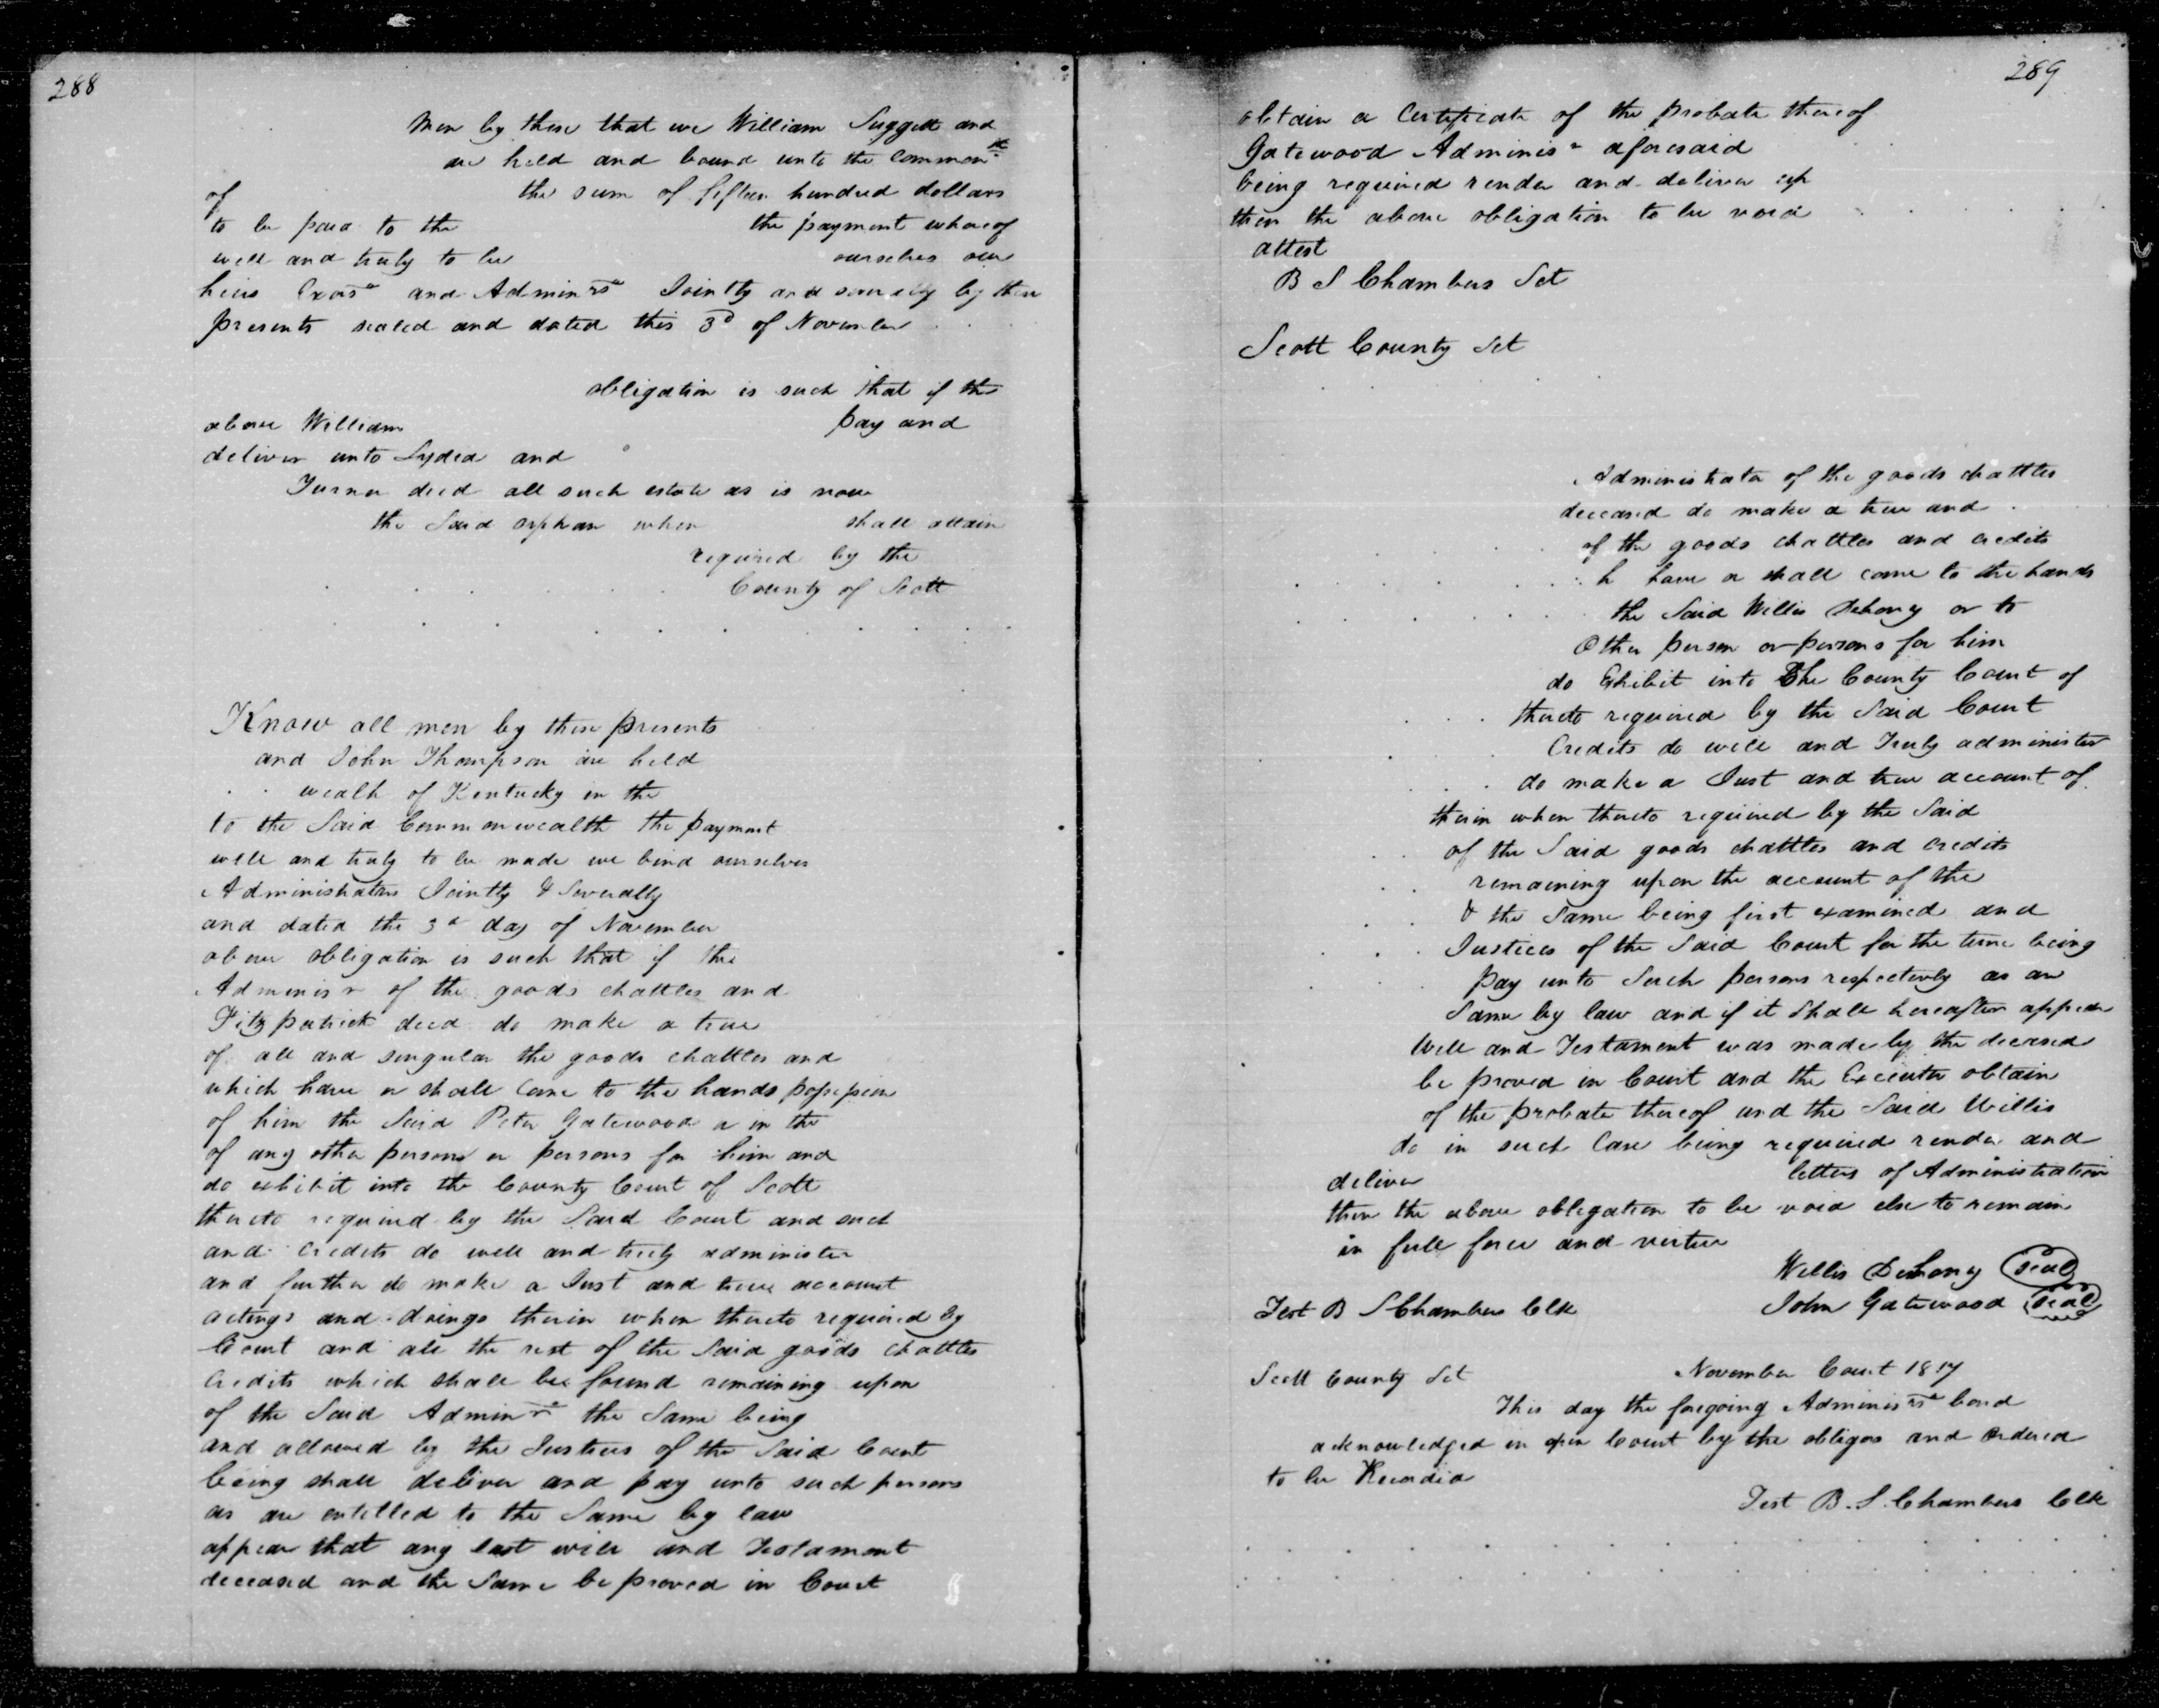 288
Men by these that we William Suggett and
are held and bound unto the common
of the sum of fifteen hundred dollars
to be paid to the the payment whereof
well and truly to be ourselves our
heirs Exors and Adminrs Jointly and severally by these
presents sealed and dated this 3d of November
obligation is such that if the
above William pay and
deliver unto Lydia and
Turner decd all such estate as is now
the Said orphan when shall attain
required by the
County of Scott
Know all men by these presents
and John Thompson are held
wealth of Kentucky in the
to the Said Commonwealth the payment
well and truly to be made we bind ourselves
Administrators Jointly & Severally
and dated the 3d day of November
above obligation is such that if the
Adminisr of the goods chattles and
Fitzpatrick decd do make a true
of all and singular the goods chattles and
which have or shall Come to the hands possession
of him the Said Peter Gatewood or in the
of any other persons or persons for him and
do exhibit into the County Court of Scott
thereto required by the Said Court and such
and credits do well and truly administer
and further do make a Just and true account
actings and doings therein when thereto required by
Court and all the rest of the Said goods chattles
Credits which shall be found remaining upon
of the Said Adminr the Same being
and allowed by the Justices of the Said Court
being shall deliver and pay unto such persons
as are entitled to the Same by law
appear that any last will and Testament
deceased and the Same be proved in Court
289
obtain a Certificate of the probate thereof
Gatewood Adminisr aforesaid
being required render and deliver up
then the above obligation to be void
attest
B S Chambers Sct
Scott County Sct
Administrator of the goods chattles
deceased do make a true and
of the goods chattles and credits
h have or shall come to the hands
the Said Willis Dehony or to
Other person or persons for him
do Exhibit into The County Court of
thereto required by the Said Court
Credits do well and Truly administer
do make a Just and true account of
therin when thereto required by the Said
of the Said goods chattles and credits
remaining upon the account of the
& the Same being first examined and
Justices of the Said Court for the time being
pay unto Such persons respectively as are
Same by law and if it Shall hereafter appear
Will and Testament was made by the deceased
be proved in Court and the Executor obtain
of the probate thereof and the Said Willis
do in such Case being required render and
deliver letters of Administration
then the above obligation to be void else to remain
in full force and virtue
Willis Dehony Seal
Test B S Chambers Clk John Gatewood Seal
Scott County Sct November Court 1817
This day the foregoing Adminisrs bond
acknowledged in open Court by the obligors and Ordered
to be Recorded
Test B. S. Chambers Clk